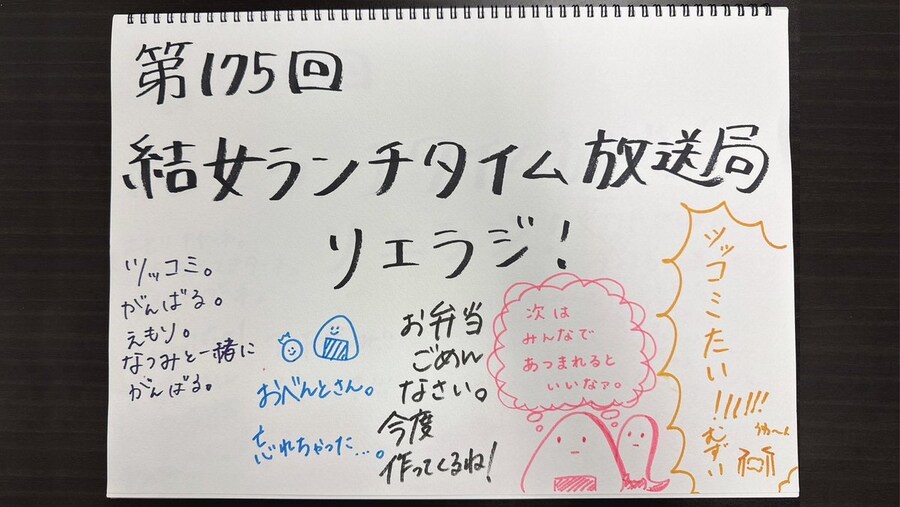 第175回
結女ランチタイム放送局
リエラジ!
ツッコミ。
がんばる。
えもり。
なつみと一緒に
がんばる。
おべんとさん。
忘れちゃった…。
お弁当
ごめん
なさい。
今度
作ってくるね!
次は
みんなで
あつまれると
いいなァ。
ツッコミたい!!!!!!
むずい
うわ〜ん